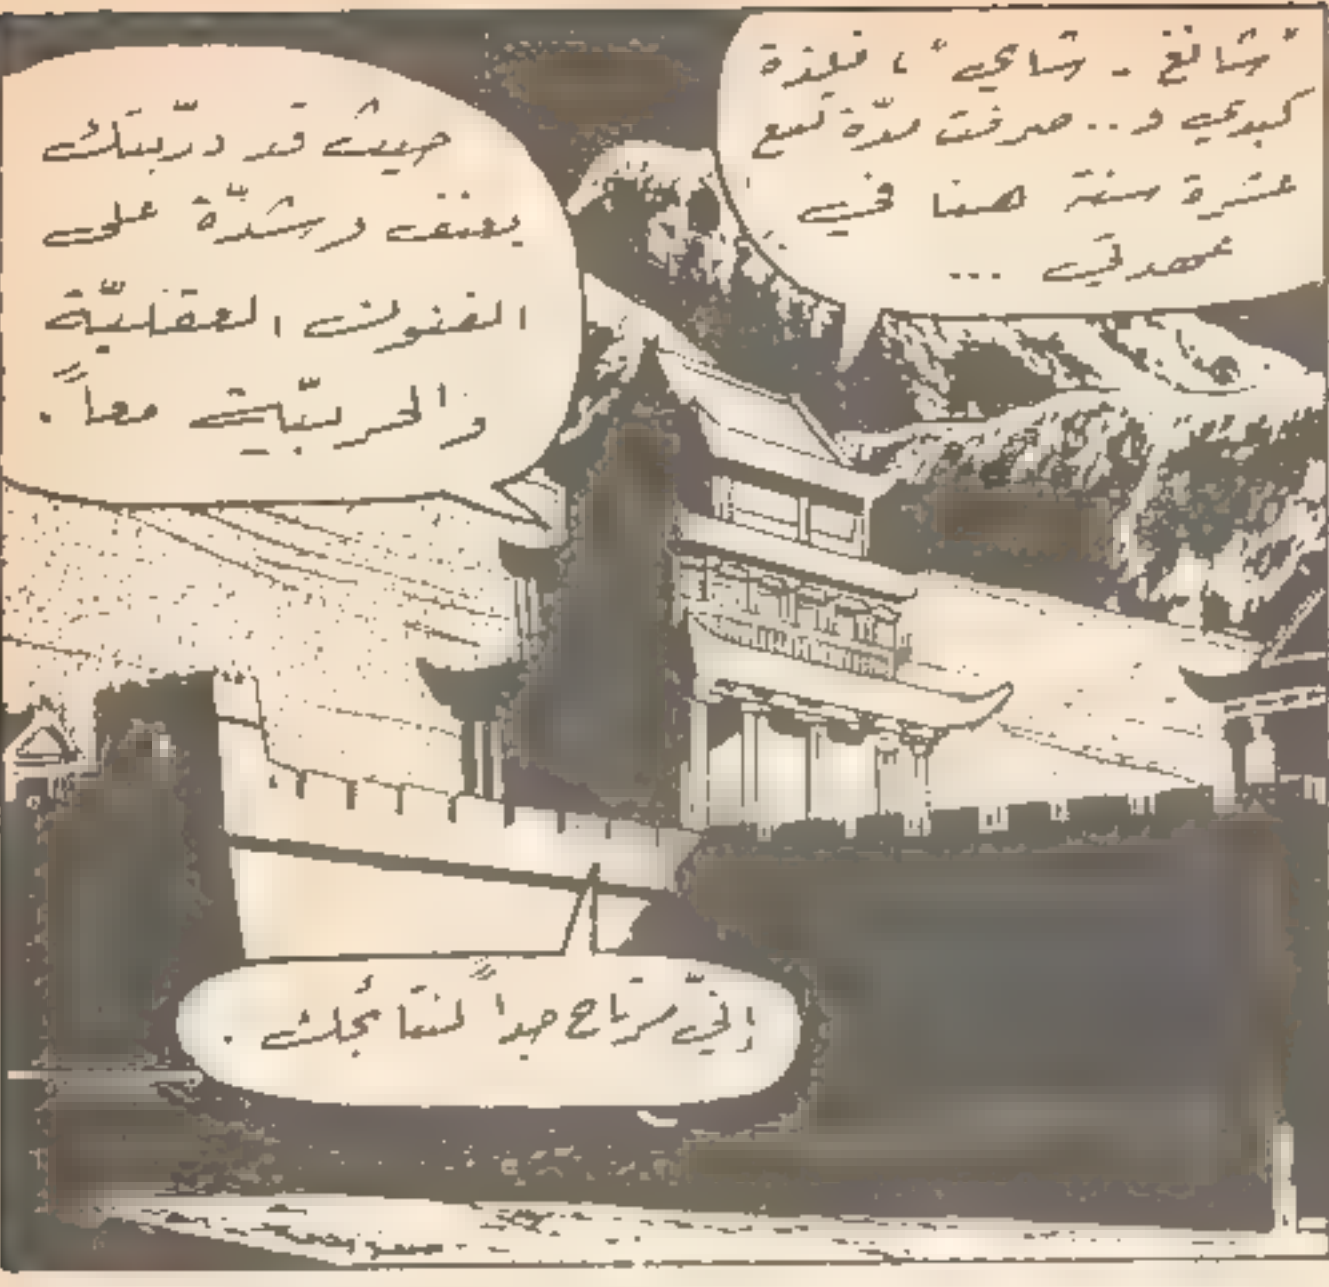 "شانغ - شاي"، فلذة
كبدي و.. صرفت مدّة تسع
عشرة سنة هنا في
عهدتي ...
حيث قد درّبتك
بعنف وبشدّة على
الفنون العقليّة
والحربيّة معاً.
إنّي مرتاح جداً لنتائجك.